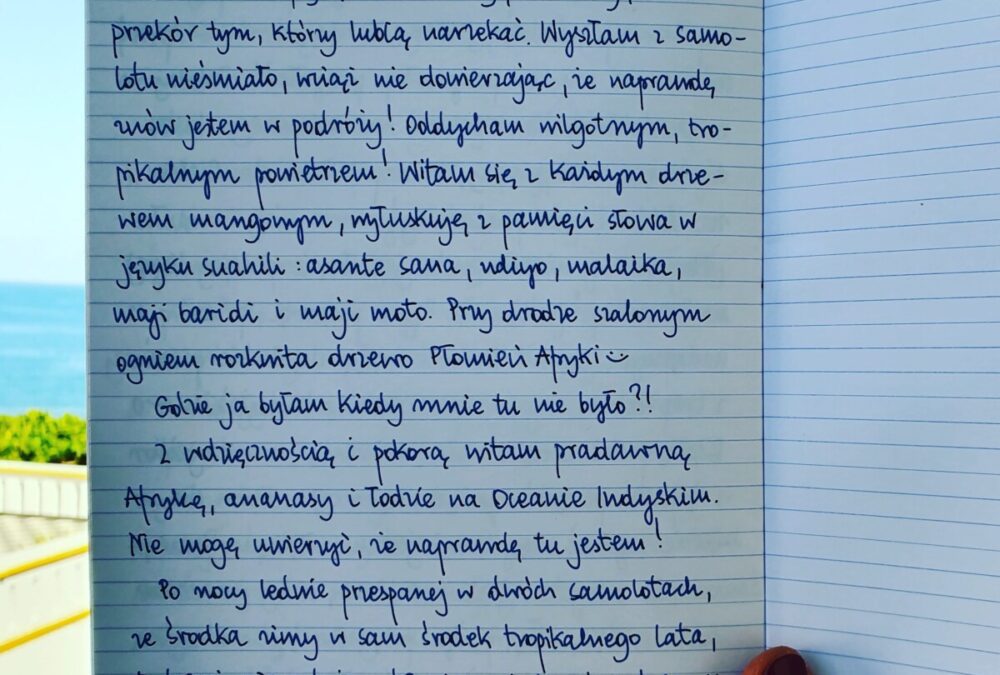 przekór tym, którzy lubią narzekać. Wyszłam z samo-
lotu nieśmiało, wciąż nie dowierzając, że naprawdę
znów jestem w podróży! Oddycham wilgotnym, tro-
pikalnym powietrzem! Witam się z każdym drze-
wem mangowym, wyłuskuję z pamięci słowa w
języku suahili : asante sana, ndiyo, malaika,
maji baridi i maji moto. Przy drodze szalonym
ogniem rozkwita drzewo Płomień Afryki
Gdzie ja byłam kiedy mnie tu nie było?!
Z wdzięcznością i pokorą witam pradawną
Afrykę, ananasy i łodzie na Oceanie Indyjskim.
Nie mogę uwierzyć, że naprawdę tu jestem!
Po nocy ledwie przespanej w dwóch samolotach,
ze środka zimy w sam środek tropikalnego lata,